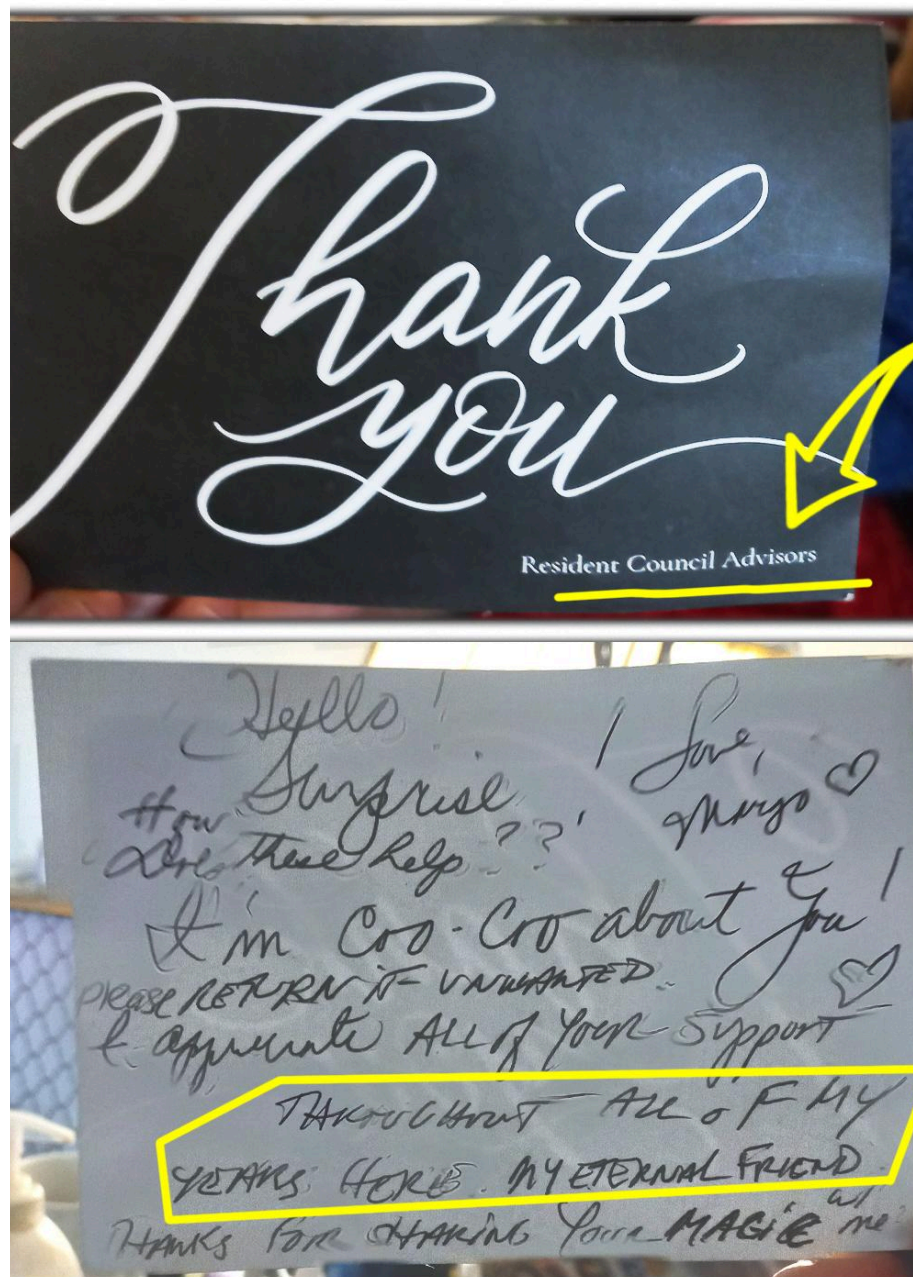 Thank
you
Resident Council Advisors
Hello!
Surprise!
How
Does these help???
Love,
Margo
I'm Coo-Coo about You!
PLEASE RETURN IF UNWANTED.
I appreciate ALL of Your Support
THROUGHOUT ALL OF MY
YEARS HERE. MY ETERNAL FRIEND.
THANKS FOR SHARING Your MAGIC w/ me